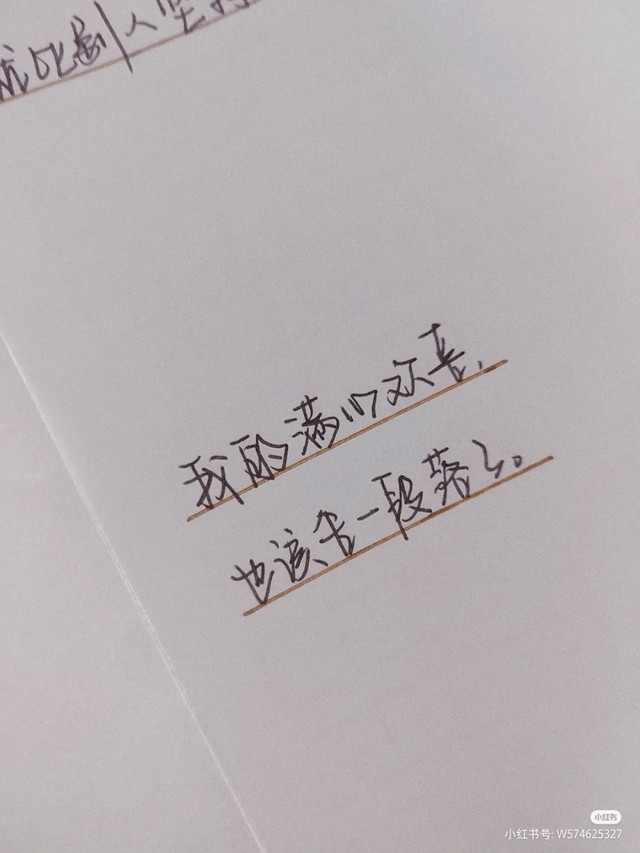 就比别人坚持
我的满心欢喜，
也该告一段落了。
小红书
小红书号: W574625327